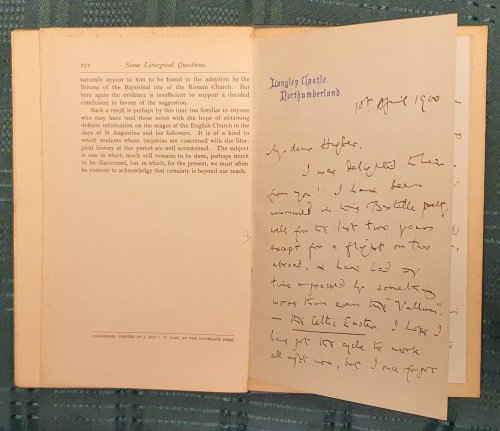 252 Some Liturgical Questions.
naturally appear to him to be found in the adoption by the
Britons of the Baptismal rite of the Roman Church. But
here again the evidence is insufficient to support a decided
conclusion in favour of the suggestion.
Such a result is perhaps by this time too familiar to anyone
who may have read these notes with the hope of obtaining
definite information on the usages of the English Church in the
days of St Augustine and his followers. It is of a kind to
which students whose enquiries are concerned with the litur-
gical history of this period are well accustomed. The subject
is one in which much still remains to be done, perhaps much
to be discovered, but in which, for the present, we must often
be content to acknowledge that certainty is beyond our reach.
CAMBRIDGE: PRINTED BY J. AND C. F. CLAY, AT THE UNIVERSITY PRESS.
Langley Castle,
Northumberland.
1st April 1900
My dear Hughes,
I was delighted to hear
from you! I have been
immured in this Bastille pretty
well for the last two years
except for a flight or two
abroad, & have had my
time engrossed by something
worse than even the "Vallum"
— the Celtic Easter. I hope I
have got the cycle to work
all right now, but I once forgot